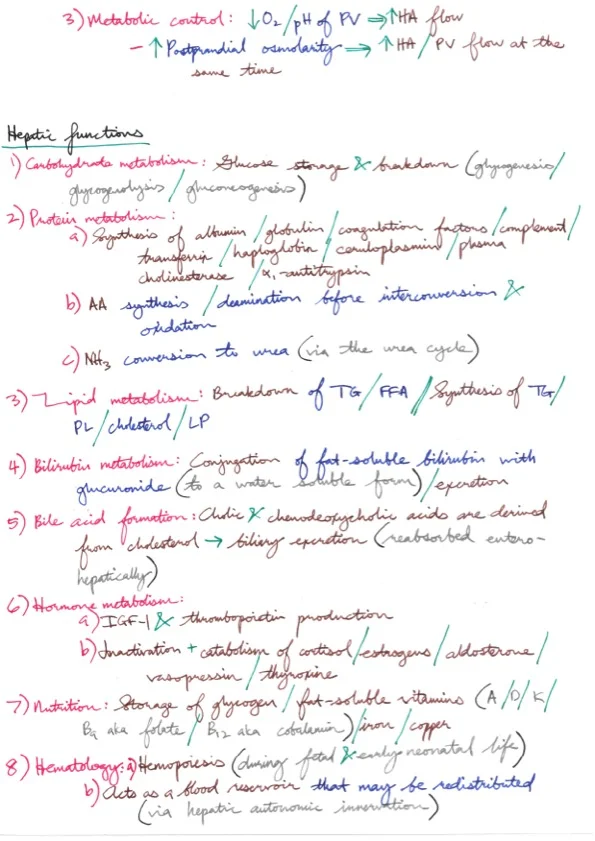 3) Metabolic control: ↓O₂/pH of PV ⇒ ↑HA flow
- ↑ Postprandial osmolarity ⇒ ↑HA/PV flow at the
same time
Hepatic functions
1) Carbohydrate metabolism: Glucose storage & breakdown (glycogenesis/
glycogenolysis/gluconeogenesis)
2) Protein metabolism:
a) Synthesis of albumin/globulin/coagulation factors/complement/
transferrin/haptoglobin/ceruloplasmin/plasma
cholinesterase/α₁-antitrypsin
b) AA synthesis/deamination before interconversion &
oxidation
c) NH₃ conversion to urea (via the urea cycle)
3) Lipid metabolism: Breakdown of TG/FFA//Synthesis of TG/
PL/cholesterol/LP
4) Bilirubin metabolism: Conjugation of fat-soluble bilirubin with
glucuronide (to a water soluble form)/excretion
5) Bile acid formation: Cholic & chenodeoxycholic acids are derived
from cholesterol → biliary excretion (reabsorbed entero-
hepatically)
6) Hormone metabolism:
a) IGF-1 & thrombopoietin production
b) Inactivation + catabolism of cortisol/estrogens/aldosterone/
vasopressin/thyroxine
7) Nutrition: Storage of glycogen/fat-soluble vitamins (A/D/K/
B₉ aka folate/B₁₂ aka cobalamin)/iron/copper
8) Hematology: a) Hemopoiesis (during fetal & early neonatal life)
b) Acts as a blood reservoir that may be redistributed
(via hepatic autonomic innervation)